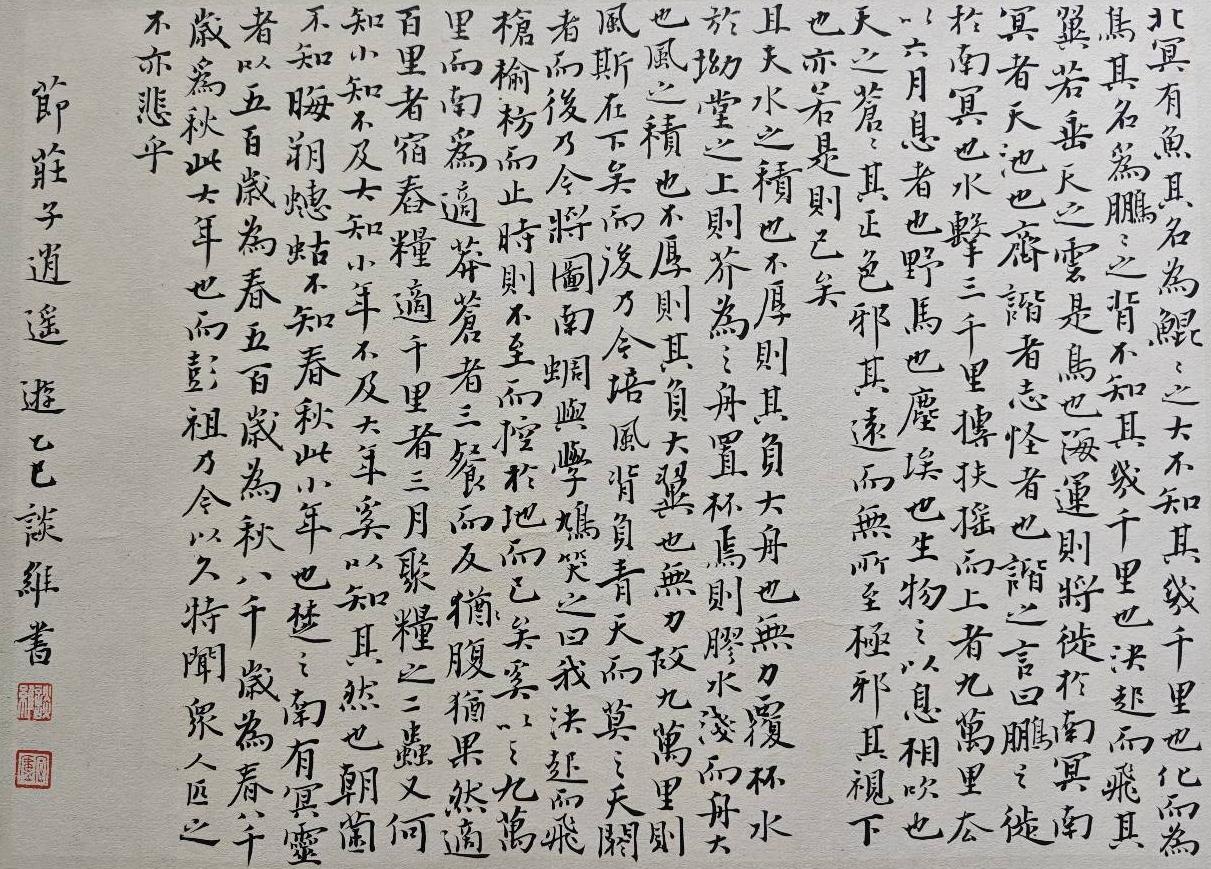 北冥有魚其名為鯤〻之大不知其幾千里也化而為
鳥其名為鵬〻之背不知其幾千里也決起而飛其
翼若垂天之雲是鳥也海運則將徙於南冥南
冥者天池也齊諧者志怪者也諧之言曰鵬之徙
於南冥也水擊三千里摶扶摇而上者九萬里去
以六月息者也野馬也塵埃也生物之以息相吹也
天之蒼〻其正色邪其遠而無所至極邪其視下
也亦若是則已矣
且夫水之積也不厚則其負大舟也無力覆杯水
於坳堂之上則芥為之舟置杯焉則膠水淺而舟大
也風之積也不厚則其負大翼也無力故九萬里則
風斯在下矣而後乃今培風背負青天而莫之夭閼
者而後乃今將圖南蜩與學鳩笑之曰我決起而飛
槍榆枋而止時則不至而控於地而已矣奚以之九萬
里而南為適莽蒼者三餐而反猶腹猶果然適
百里者宿舂糧適千里者三月聚糧之二蟲又何
知小知不及大知小年不及大年奚以知其然也朝菌
不知晦朔蟪蛄不知春秋此小年也楚之南有冥靈
者以五百歲為春五百歲為秋八千歲為春八千
歲為秋此大年也而彭祖乃今以久特聞眾人匹之
不亦悲乎
節莊子逍遥遊乙巳談維書